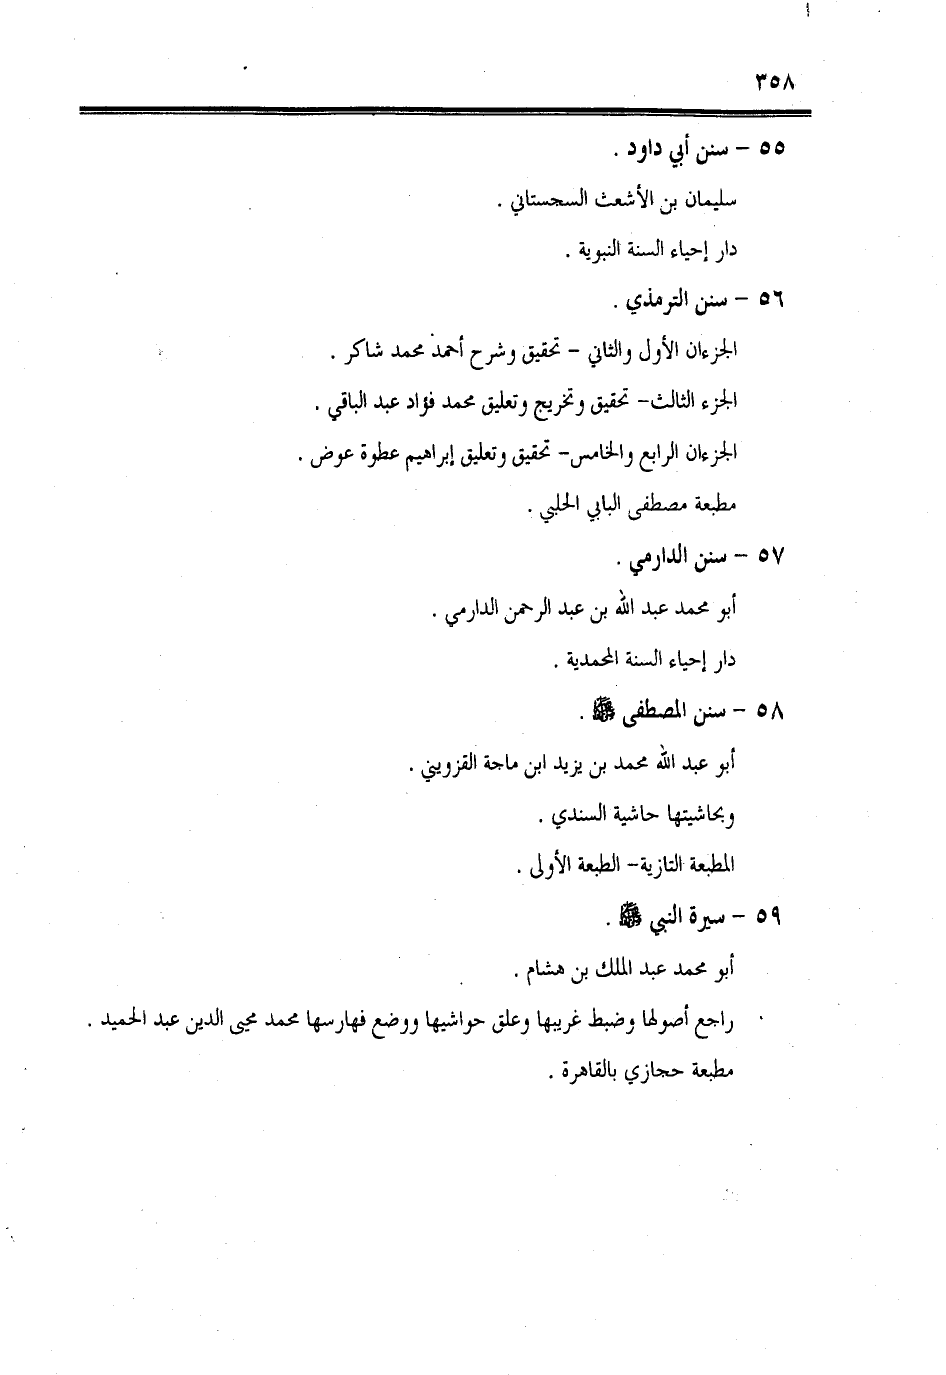 ٣٥٨
٥٥ – سنن أبي داود .
سليمان بن الأشعث السجستاني .
دار إحياء السنة النبوية .
٥٦ – سنن الترمذي .
الجزءان الأول والثاني – تحقيق وشرح أحمد محمد شاكر .
الجزء الثالث– تحقيق وتخريج وتعليق محمد فؤاد عبد الباقي .
الجزءان الرابع والخامس– تحقيق وتعليق إبراهيم عطوة عوض .
مطبعة مصطفى البابي الحلبي .
٥٧ – سنن الدارمي .
أبو محمد عبد الله بن عبد الرحمن الدارمي .
دار إحياء السنة المحمدية .
٥٨ – سنن المصطفى ﷺ .
أبو عبد الله محمد بن يزيد ابن ماجة القزويني .
وبحاشيتها حاشية السندي .
المطبعة التازية– الطبعة الأولى .
٥٩ – سيرة النبي ﷺ .
أبو محمد عبد الملك بن هشام .
راجع أصولها وضبط غريبها وعلق حواشيها ووضع فهارسها محمد محيى الدين عبد الحميد .
مطبعة حجازي بالقاهرة .